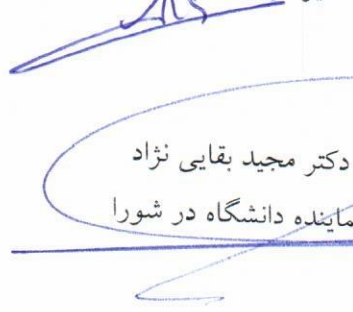 دکتر مجید بقایی نژاد
ماینده دانشگاه در شورا